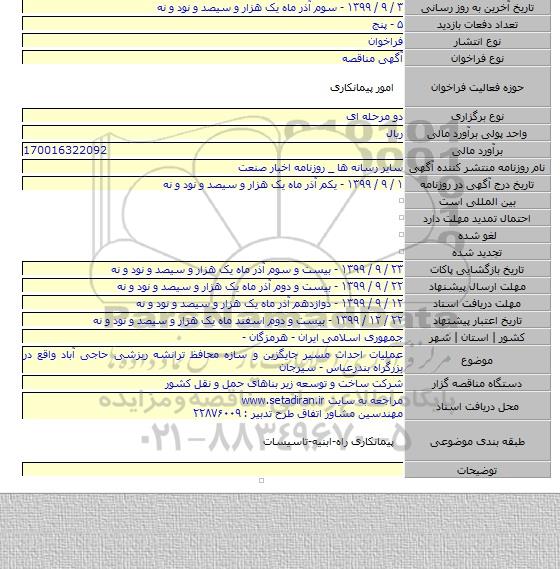 تاریخ آخرین به روز رسانی ۳ / ۹ / ۱۳۹۹ - سوم آذر ماه یک هزار و سیصد و نود و نه
تعداد دفعات بازدید ۵ - پنج
نوع انتشار فراخوان
نوع فراخوان آگهی مناقصه
حوزه فعالیت فراخوان امور پیمانکاری
نوع برگزاری دو مرحله ای
واحد پولی برآورد مالی ریال
برآورد مالی 170016322092
نام روزنامه منتشر کننده آگهی سایر رسانه ها _ روزنامه اخبار صنعت
تاریخ درج آگهی در روزنامه ۱ / ۹ / ۱۳۹۹ - یکم آذر ماه یک هزار و سیصد و نود و نه
بین المللی است
احتمال تمدید مهلت دارد
لغو شده
تجدید شده
تاریخ بازگشایی پاکات ۲۳ / ۹ / ۱۳۹۹ - بیست و سوم آذر ماه یک هزار و سیصد و نود و نه
مهلت ارسال پیشنهاد ۲۲ / ۹ / ۱۳۹۹ - بیست و دوم آذر ماه یک هزار و سیصد و نود و نه
مهلت دریافت اسناد ۱۲ / ۹ / ۱۳۹۹ - دوازدهم آذر ماه یک هزار و سیصد و نود و نه
تاریخ اعتبار پیشنهاد ۲۲ / ۱۲ / ۱۳۹۹ - بیست و دوم اسفند ماه یک هزار و سیصد و نود و نه
کشور | استان | شهر جمهوری اسلامی ایران - هرمزگان -
موضوع عملیات احداث مسیر جایگزین و سازه محافظ ترانشه ریزشی حاجی آباد واقع در
بزرگراه بندرعباس - سیرجان
دستگاه مناقصه گزار شرکت ساخت و توسعه زیر بناهای حمل و نقل کشور
محل دریافت اسناد مراجعه به سایت www.setadiran.ir
مهندسین مشاور اتفاق طرح تدبیر : ۲۲۸۷۶۰۰۹
طبقه بندی موضوعی پیمانکاری راه-ابنیه-تاسیسات
توضیحات
۰۲۱-۸۸۳۴۹۶۷۰-۵